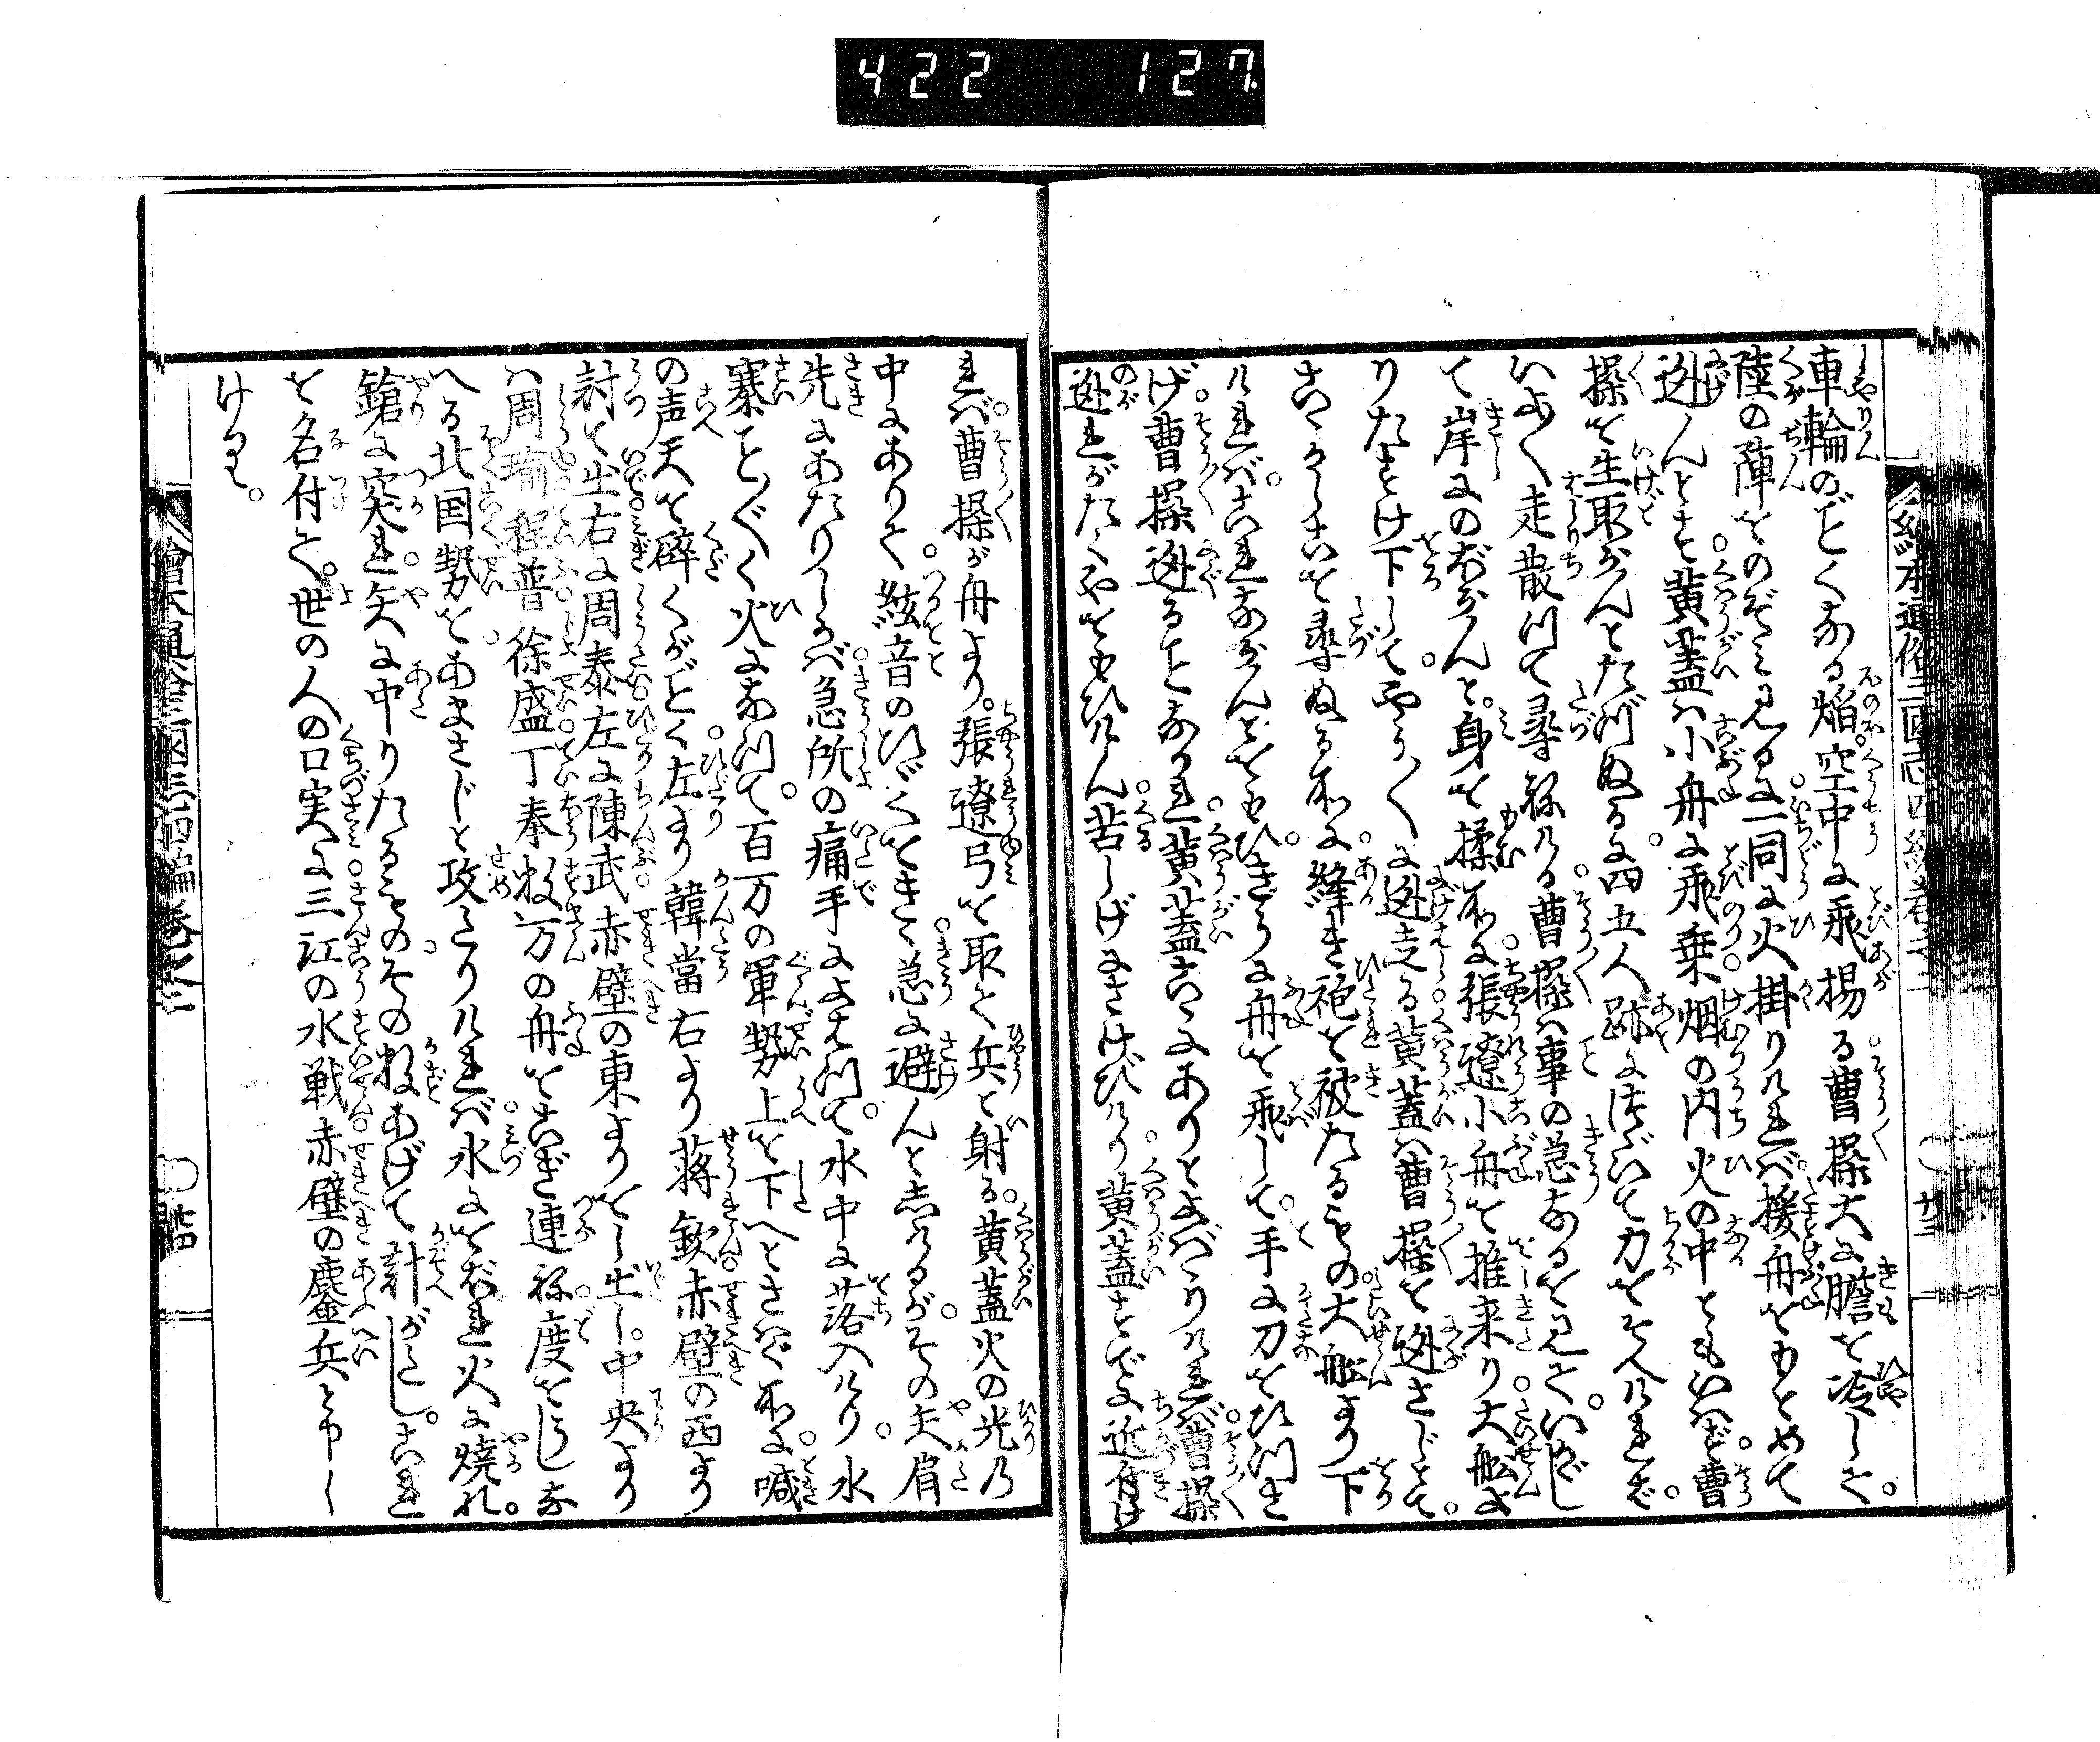 422 127
車輪のごとくなる焔空中に飛揚る曹操大に膽を冷して
陸の陣をのぞみ見るに一同に火掛りければ援舟をもとめて
逃んとす黄蓋は小舟に飛乗烟の内火の中ともいはず曹
操を生取なんとたづぬるに四五人跡につゞいて力をそへければ
いよ〱走散つて尋ねる曹操は事の急なるを見ていかゞし
て岸にのぼなんと身を揉所に張遼小舟を推来り大舩よ
りたすけ下してやう〱に逃走る黄蓋は曹操を逃さじとて
こゝかしこを尋ぬる所に絳き袍を被たるもの大舩より下
ければこれなんとおもひきうに舟を飛して手に刀をひつさ
げ曹操逃ることなかれ黄蓋こゝにありとよばゝりければ曹操
逃れがたくやおもひけん苦しげにさけびけり黄蓋すでに近付け
れば曹操が舟より張遼弓を取て兵と射る黄蓋火の光の
中にありて絃音のひゞくをきゝ急に避んとしけるがその矢肩
先にあたりしかば急所の痛手によはつて水中に落入けり水
寨こと〲く火になつて百万の軍勢上を下へとさはぐ所に喊
の声天を砕くがごとく左より韓當右より蒋欽赤壁の西より
討て出右に周泰左に陳武赤壁の東よりをし出し中央より
は周瑜程普徐盛丁奉数万の舟をこぎ連ね度をうしな
へる北国勢をあまさじと攻たりければ水におぼれ火に焼れ
鎗に突れ矢に中りたるものその数あげて計がたしこれ
を名付て世の人の口実に三江の水戦赤壁の鏖兵と申し
けり